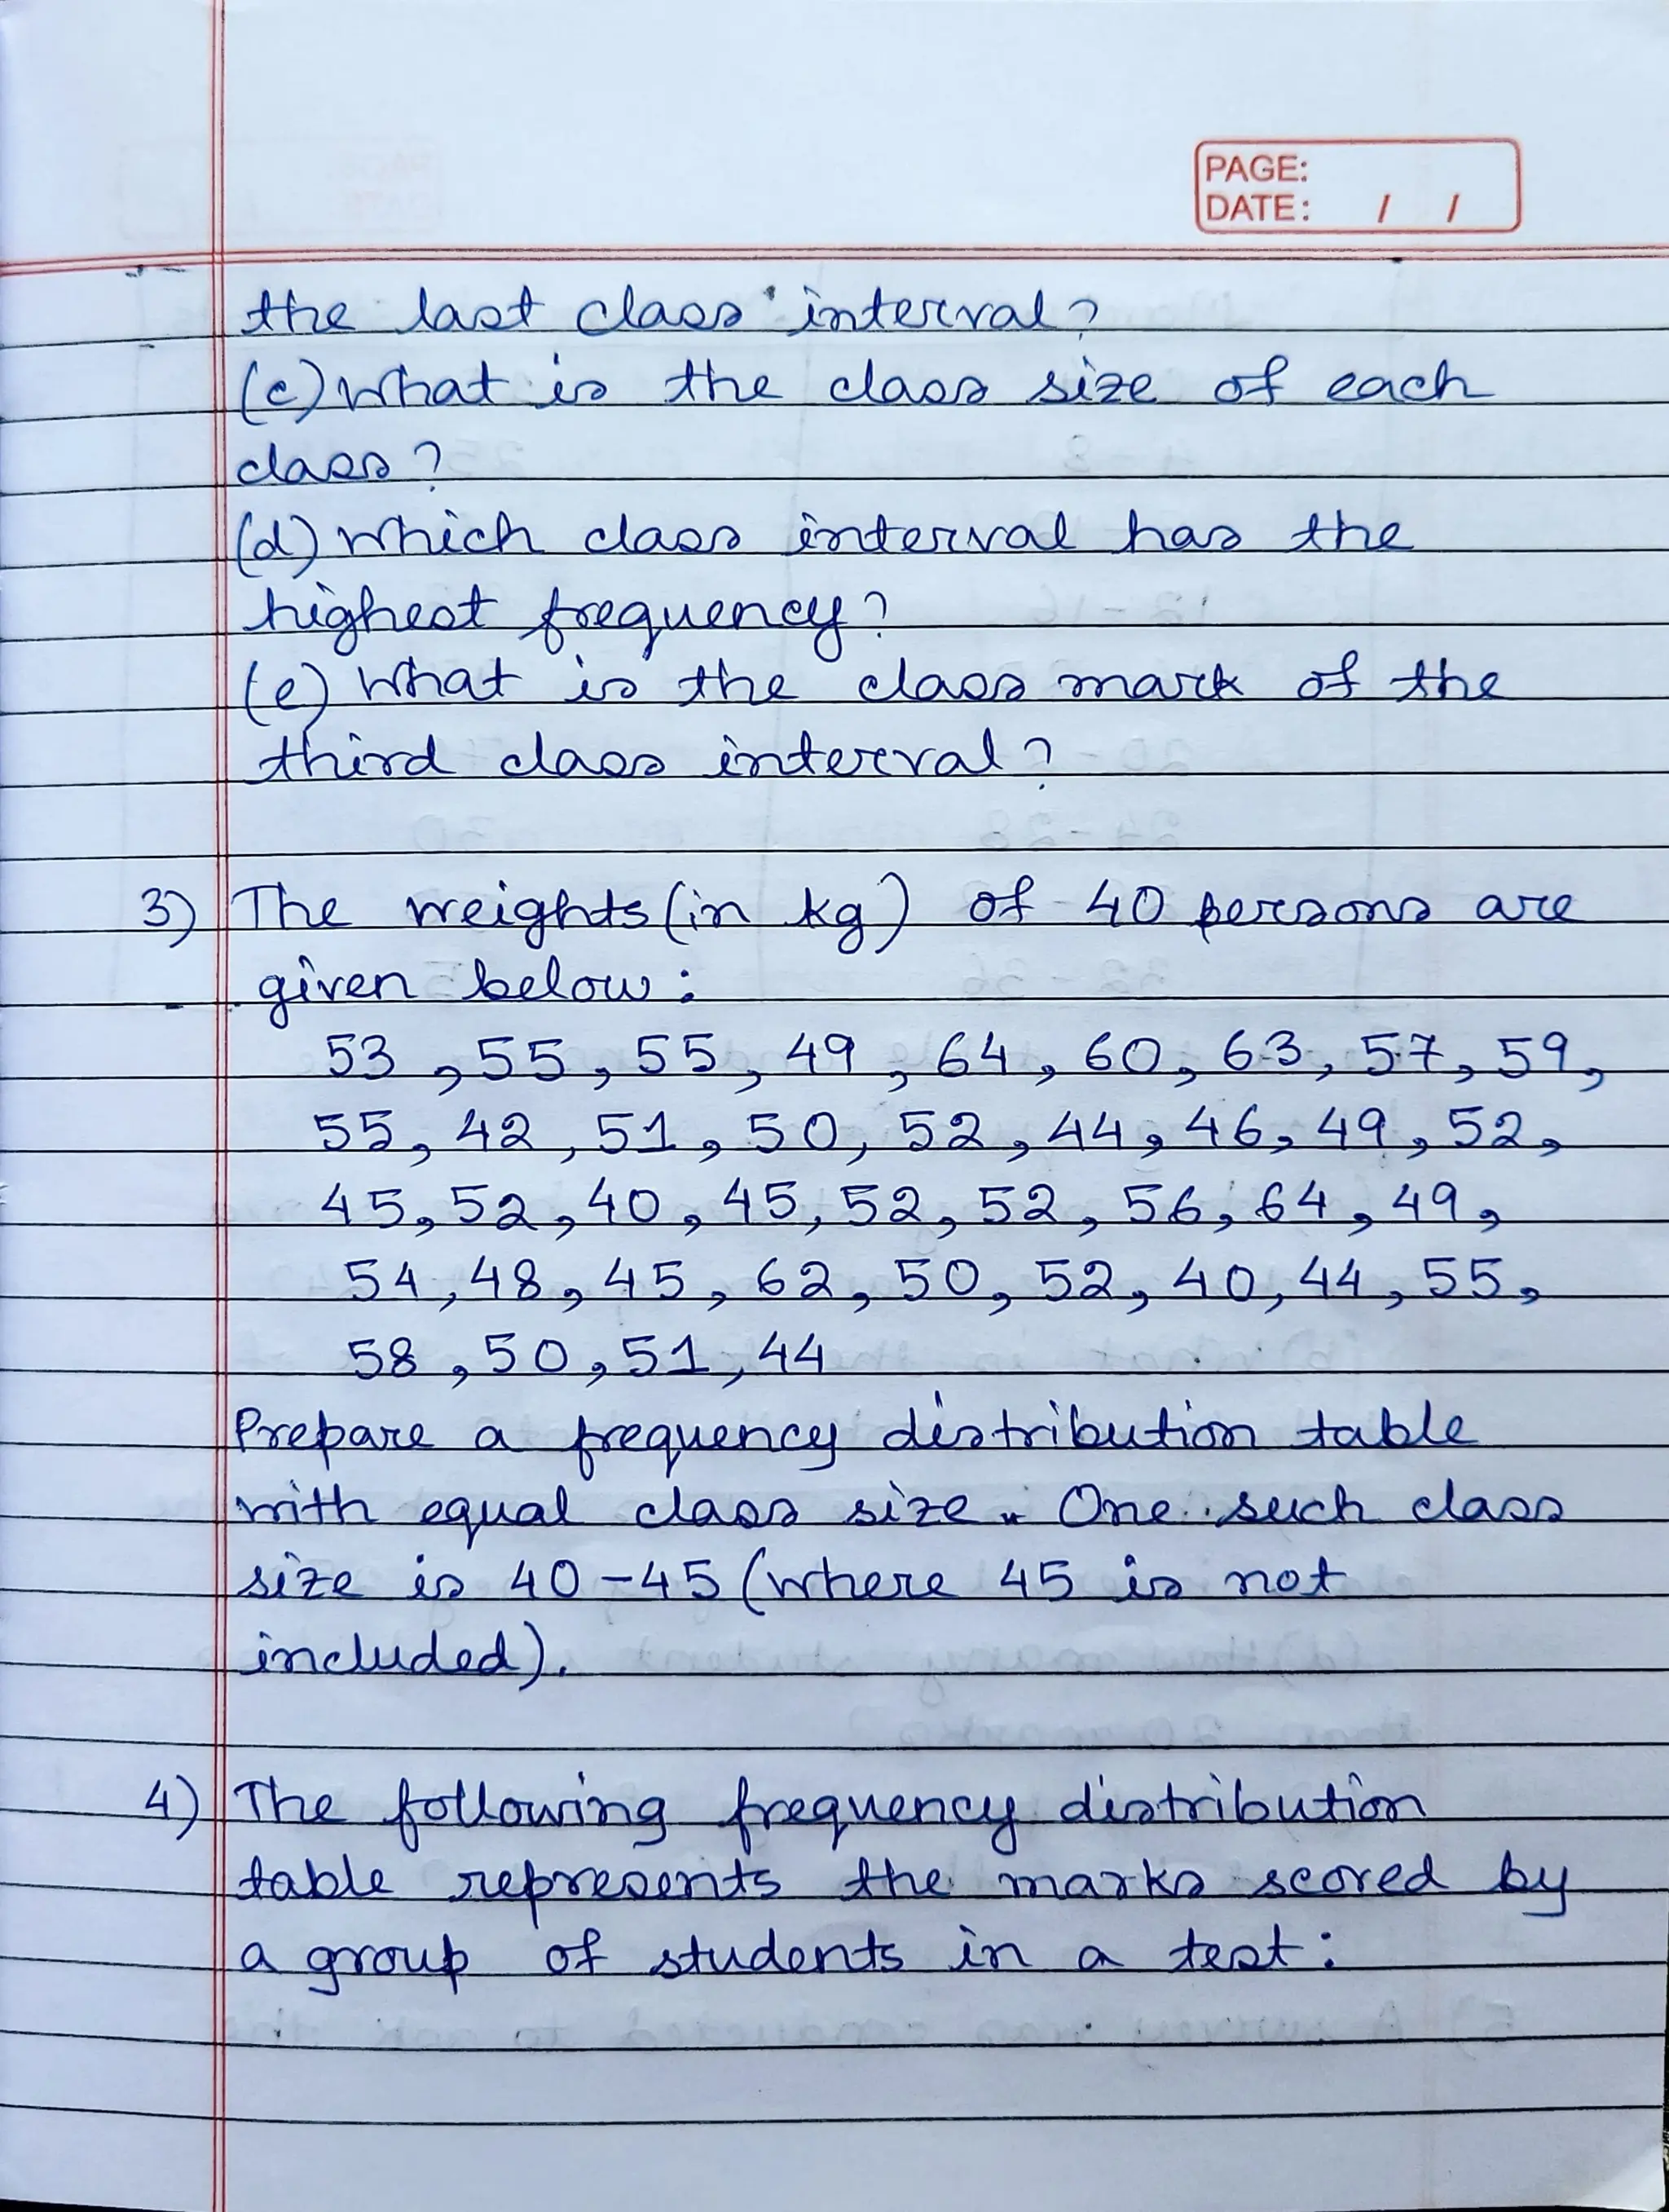 PAGE:
DATE: / /
the last class interval?
(c) What is the class size of each
class?
(d) Which class interval has the
highest frequency?
(e) What is the class mark of the
third class interval?
3) The weights (in kg) of 40 persons are
given below:
53, 55, 55, 49, 64, 60, 63, 57, 59,
55, 42, 51, 50, 52, 44, 46, 49, 52,
45, 52, 40, 45, 52, 52, 56, 64, 49,
54, 48, 45, 62, 50, 52, 40, 44, 55,
58, 50, 51, 44
Prepare a frequency distribution table
with equal class size. One such class
size is 40-45 (where 45 is not
included).
4) The following frequency distribution
table represents the marks scored by
a group of students in a test: